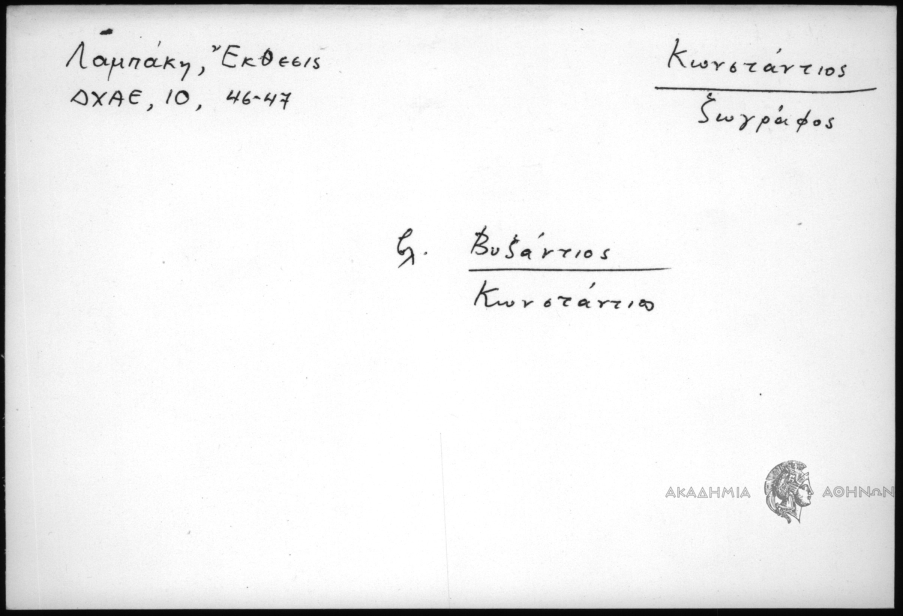 Λαμπάκη, Ἔκθεσις
ΔΧΑΕ, 10, 46-47
Κωνστάντιος
ζωγράφος
βλ. Βυζάντιος
Κωνστάντιος
ΑΚΑΔΗΜΙΑ ΑΘΗΝΩΝ